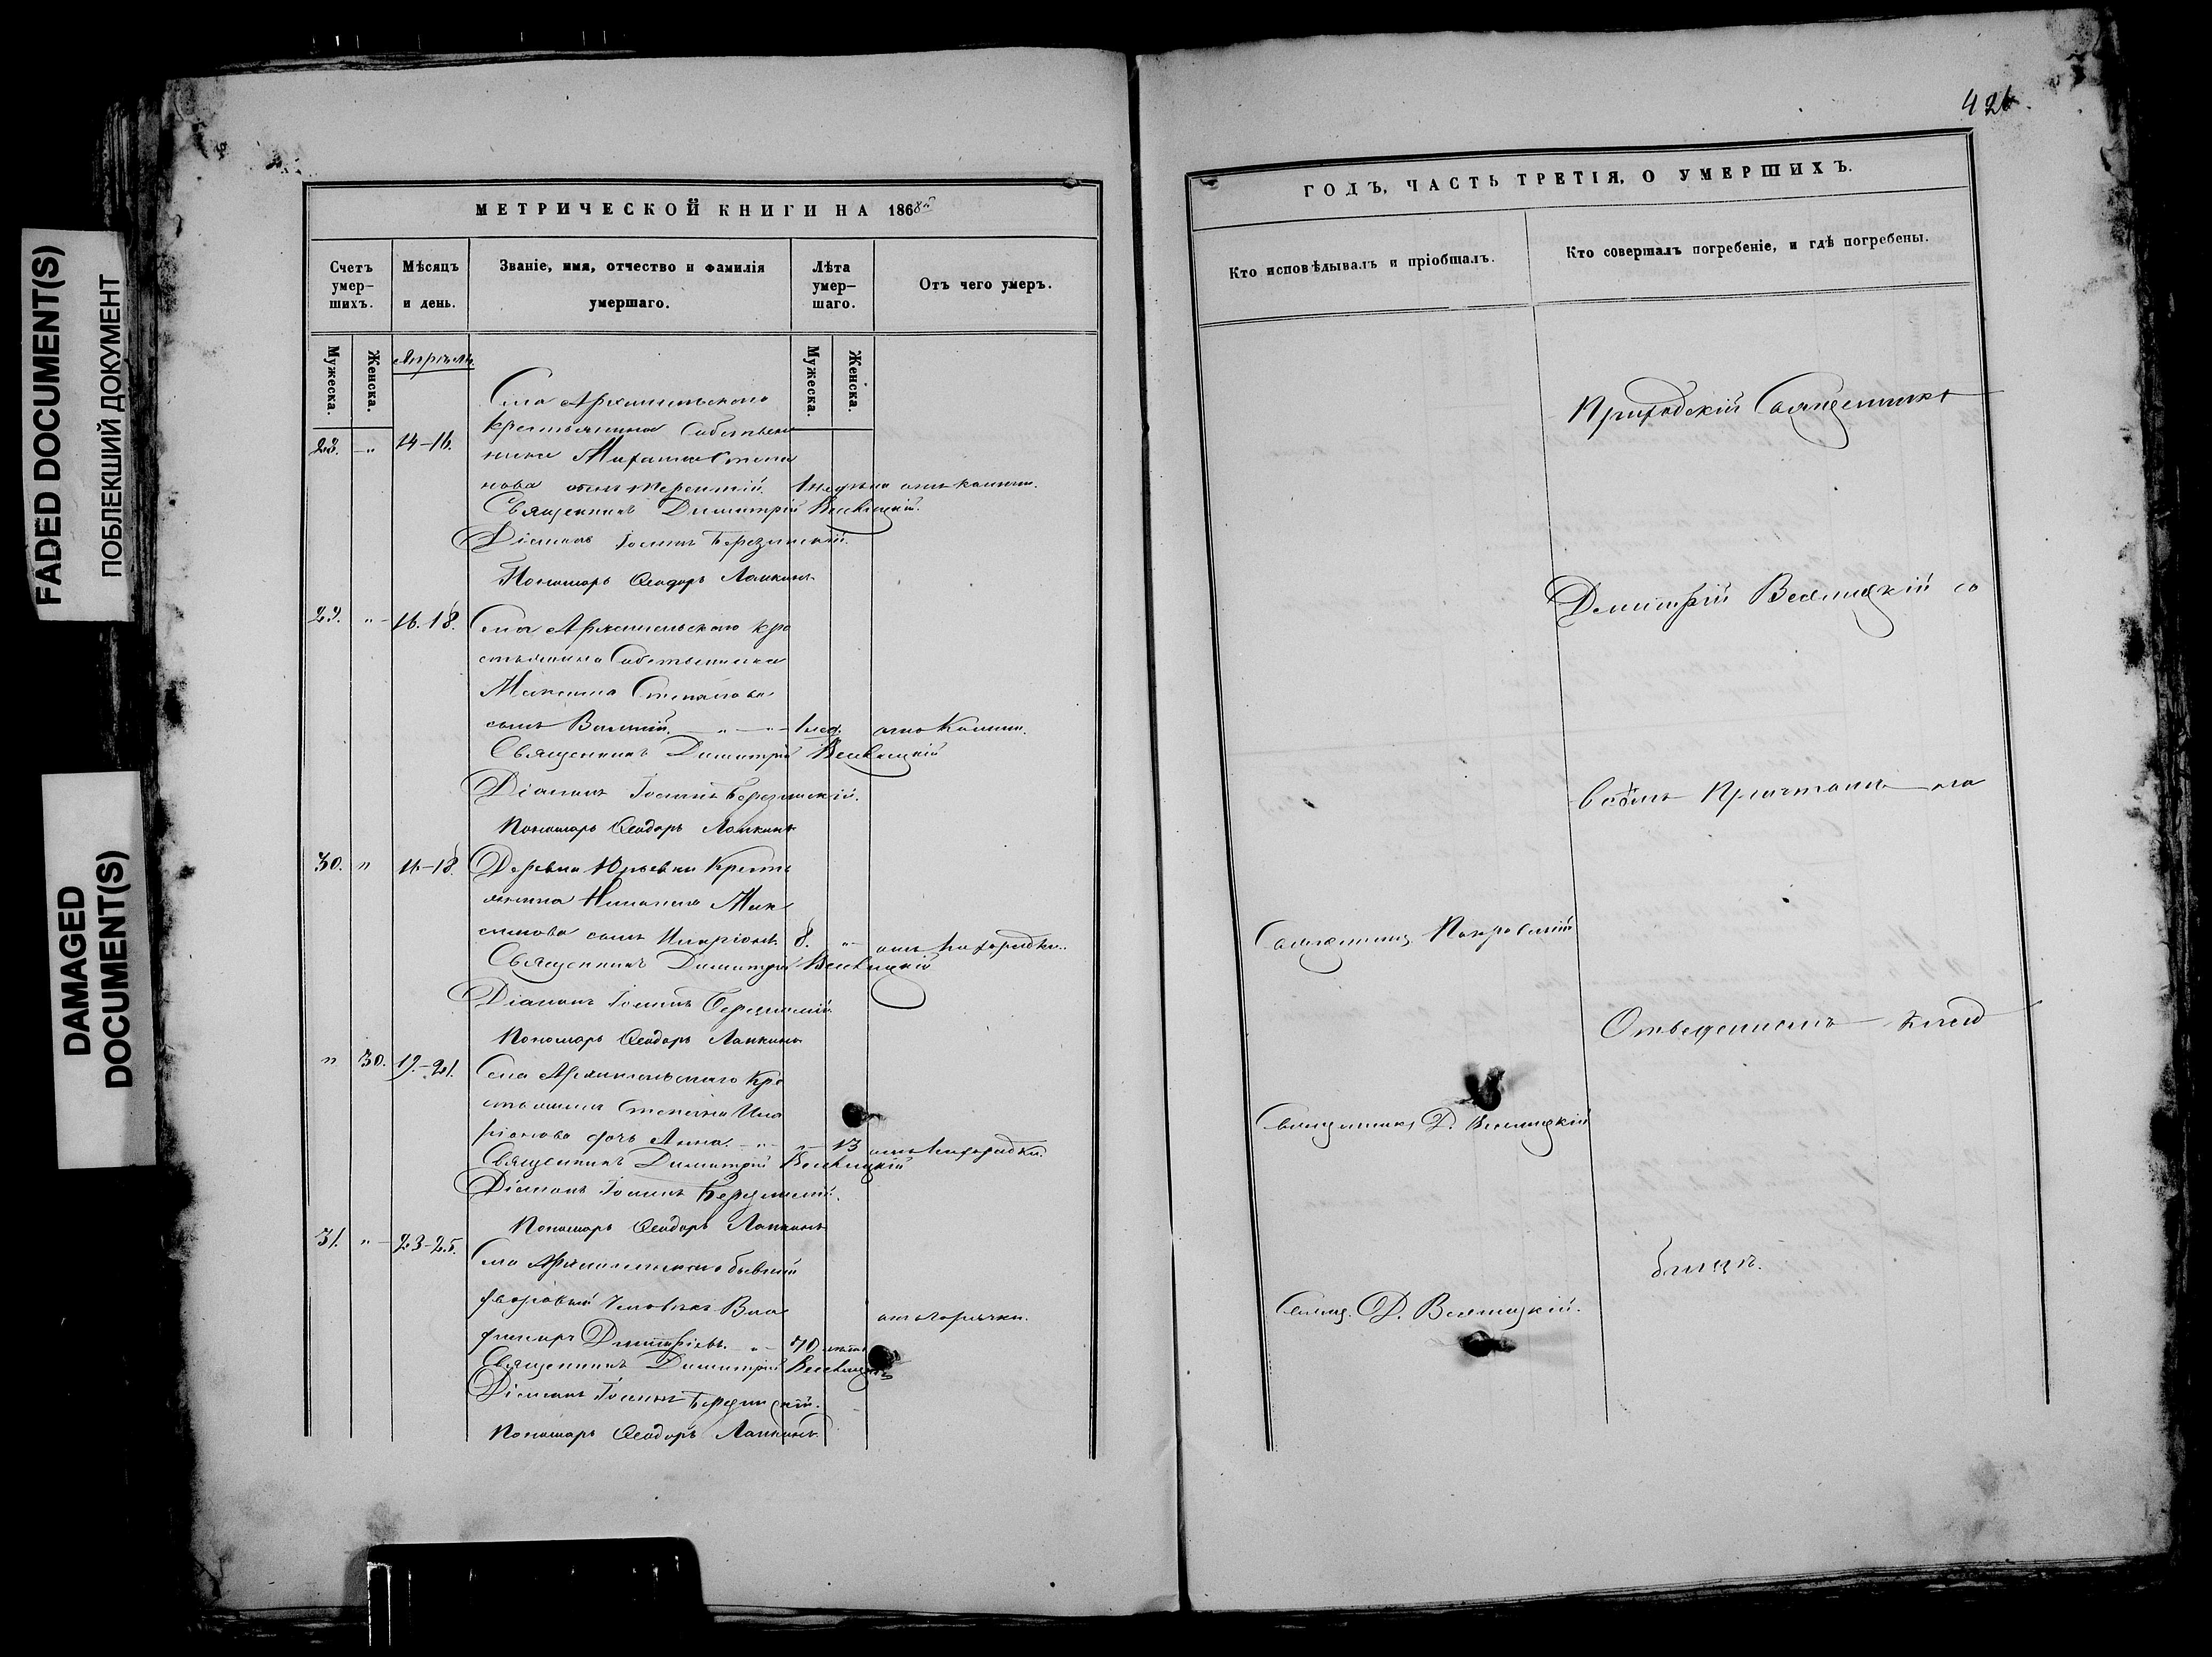 FADED DOCUMENT(S)
ПОБЛЕКШИЙ ДОКУМЕНТ
DAMAGED
DOCUMENT(S)
МЕТРИЧЕСКОЙ КНИГИ НА 1868й
Счетъ умер-шихъ.
Мѣсяцъ и день.
Званіе, имя, отчество и фамилія умершаго.
Лѣта умер-шаго.
Отъ чего умеръ.
Мужеска.
Женска.
Мужеска.
Женска.
Апрѣль.
28. " 14-16.
Села Архангельскаго
крестьянина Собствен
ника Михаила Степа
нова сынъ Терентій. 1 недѣли отъ колики.
Священникъ Димитрій Веселицкій.
Діаконъ Іоаннъ Березинскій.
Пономарь Ѳеодоръ Лапкинъ
29. " 16.18. Села Архангельскаго кре
стьянина Собственника
Максима Степанова
сынъ Василій. " 1 нед. отъ Колики.
Священникъ Димитрій Веселицкій
Діаконъ Іоаннъ Березинскій.
Пономарь Ѳеодоръ Лапкинъ
30. " 16-18. Деревни Юрьевки Кресть
янина Мак
симова сынъ Иларіонъ. 8. " отъ Лихорадки.
Священникъ Димитрій Веселицкій
Діаконъ Іоаннъ Березинскій.
Пономарь Ѳеодоръ Лапкинъ
" 30. 19.-21. Села Архангельскаго Кре
стьянина Степана Ила
ріонова дочь Анна. " 13 отъ Лихорадки.
Священникъ Димитрій Веселицкій
Діаконъ Іоаннъ Березинскій.
Пономарь Ѳеодоръ Лапкинъ
31. " 23-25. Села Архангельскаго бывшій
дворовый Человѣкъ Вла
диміръ Димитріевъ. " 70 лѣтъ отъ Горячки.
Священникъ Димитрій Веселицкій
Діаконъ Іоаннъ Березинскій.
Пономарь Ѳеодоръ Лапкинъ.
424.
ГОДЪ, ЧАСТЬ ТРЕТІЯ, О УМЕРШИХЪ.
Кто исповѣдывалъ и пріобщалъ.
Кто совершалъ погребеніе, и гдѣ погребены.
Приходскій Священникъ
Димитрій Веселицкій со
всѣмъ Причтомъ на
Священник Покровскій
Отведенномъ клад
Священникъ Д. Веселицкій
бищѣ.
Свящ. Д. Веселицкій.